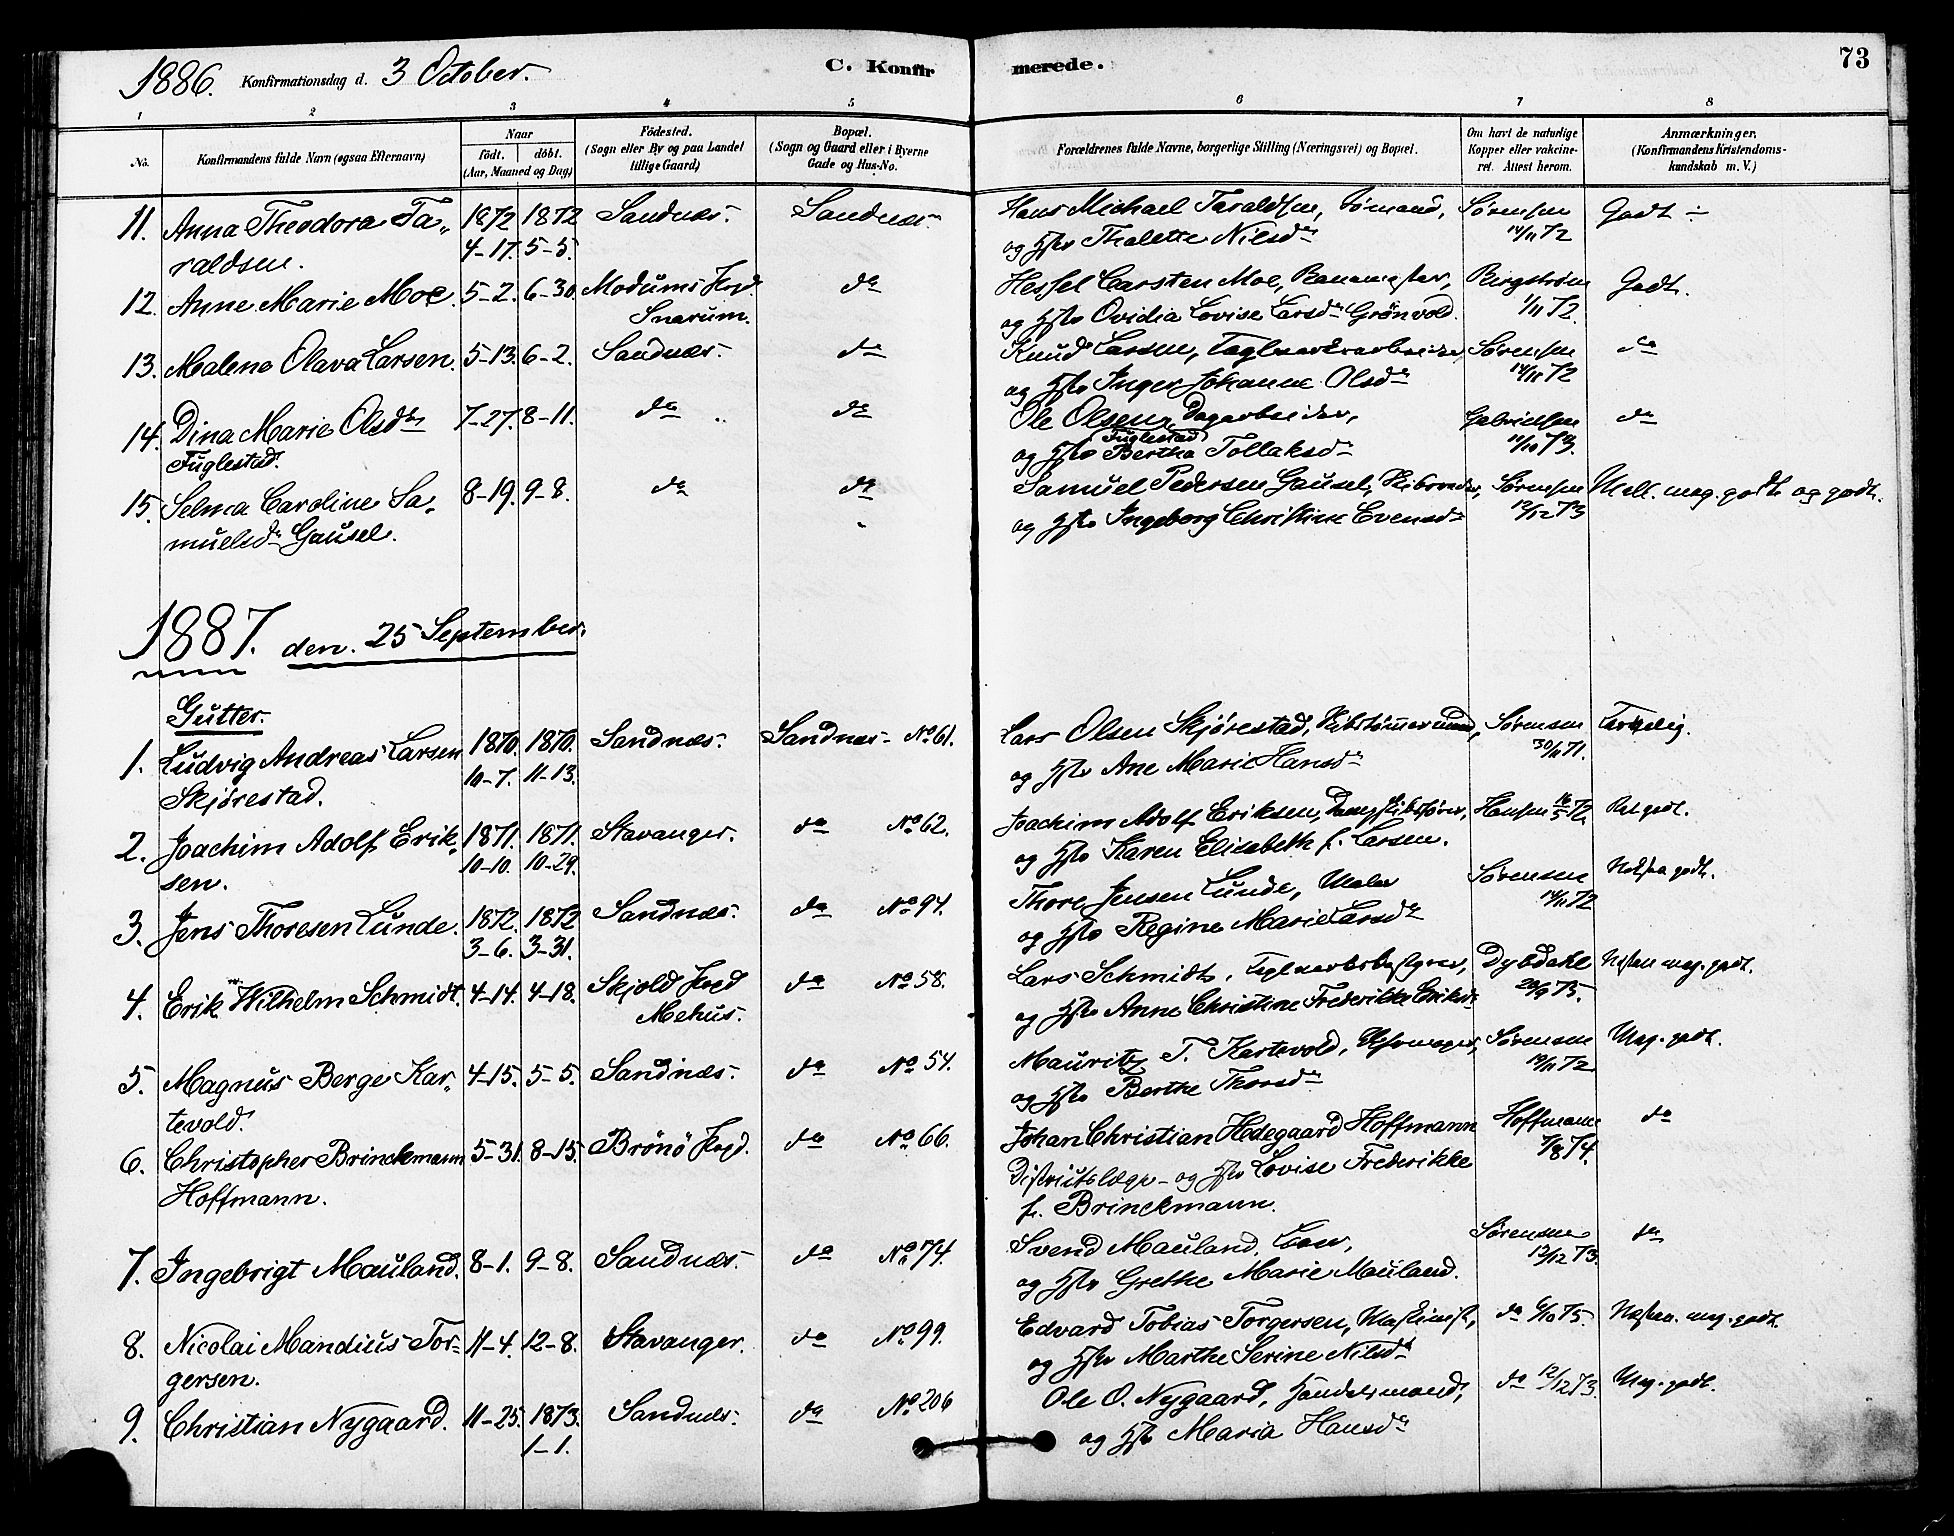 1886. Konfirmationsdag d. 3 October. C. Konfirmerede. 73
1 2 3 4 5 6 7 8
No. Konfirmandens fulde Navn (ogsaa Efternavn) Naar født. døbt. (Aar, Maaned og Dag) Fødested. (Sogn eller By og paa Landet tillige Gaard) Bopæl. (Sogn og Gaard eller i Byerne Gade og Hus-No. Forældrenes fulde Navne, borgerlige Stilling (Næringsvei) og Bopæl. Om havt de naturlige Kopper eller vakcineret. Attest herom. Anmærkninger. (Konfirmandens Kristendomskundskab m. V.)
11. Anna Theodora Ta- 1872 1872 Sandnæs. Sandnæs. Hans Michael Taraldsen, Sømand, Sørensen Godt
raldsen. 4-17. 5-5. og Hstr Thalette Nilsdr 14/11 72
12. Anne Marie Moe. 5-2. 6-30. Modums Prgd. do Hessel Carsten Moe, Banemester, Bergstrøm Godt.
Snarum. og Hstr Ovidia Lovise Larsdr Grönvold. 1/11 72.
13. Malene Olava Larsen. 5-13. 6-2. Sandnæs. do Knud Larsen, Taglværksarbeider, Sørensen do
og Hstr Inger Johanne Olsdr 14/11 72
14. Dina Marie Olsdtr 7-27. 8-11. do do Ole Olsen, Dagarbeider, Gabrielsen do
Fuglestad. Fuglestad og Hstr Bertha Tollaksdr 14/10 73.
15. Selma Caroline Sa- 8-19. 9-8. do do Samuel Pedersen Gausel, Sørensen Mell. meg. godt og godt.
muelsdr Gausel. og Hstr Ingeborg Christine Evensdr 12/12 73
1887. den. 25 September.
Gutter.
1. Ludvig Andreas Larsen 1870. 1870. Sandnæs. Sandnæs- No 61. Lars Olsen Skjørestad, Skibstømmermand, Sørensen
Skjørestad. 10-7. 11-13. og Hstr Ane Marie Hansdr 30/11 71.
2. Joachim Adolf Erik- 1871. 1871. Stavanger. do No 62. Joachim Adolf Eriksen, Dampskibsfører, Hansen 16/5 72. Ret godt.
sen. 10-10. 10-29. og Hstr Karen Elisabeth f. Larsen.
3. Jens Thoresen Lunde. 1872. 1872 Sandnæs. do No 94. Thore Jensen Lunde, Maler Sørensen Netop godt.
3-6. 3-31. og Hstr Regine Marie Larsdr 14/11 72
4. Erik Wilhelm Schmidt. 4-14. 4-18. Skjold Prgd do No 58. Lars Schmidt, Taglværksbestyrer, Dybdahl Næsten meg. godt.
Mehus. og Hstr Anne Christine Frederikke Eriksdr 20/9 75.
5. Magnus Berge Kar- 4-15. 5-5. Sandnæs. do No 54. Mauritz T. Kartevold, Sørensen Meg. godt.
tevold. og Hstr Berthe Thorsdr 19/11 72
6. Christopher Brinckmann 5-31. 8-15. Brönö Prgd. do No 66. Johan Christian Hedegaard Hoffmann Hoffmann do
Hoffmann. Distriktslæge - og Hstr Lovise Frederikke 7/8 74.
f. Brinckmann.
7. Ingebrigt Mauland. 8-1. 9-8. Sandnæs. do No 74. Svend Mauland, Sørensen do
og Hstr Grethe Marie Mauland. 12/12 73.
8. Nicolai Mandius Tor- 11-4. 12-8. Stavanger. do No 99. Edvard Tobias Torgersen, Maskinist, do 6/10 75. Næsten. meg. godt.
gersen. og Hstr Marthe Serine Nilsdr
9. Christian Nygaard. 11-25. 1873. Sandnæs. do No 206 Ole O. Nygaard, Handelsmand, do 12/12 73. Meg. godt.
1-1. og Hstr Maria Hansdr